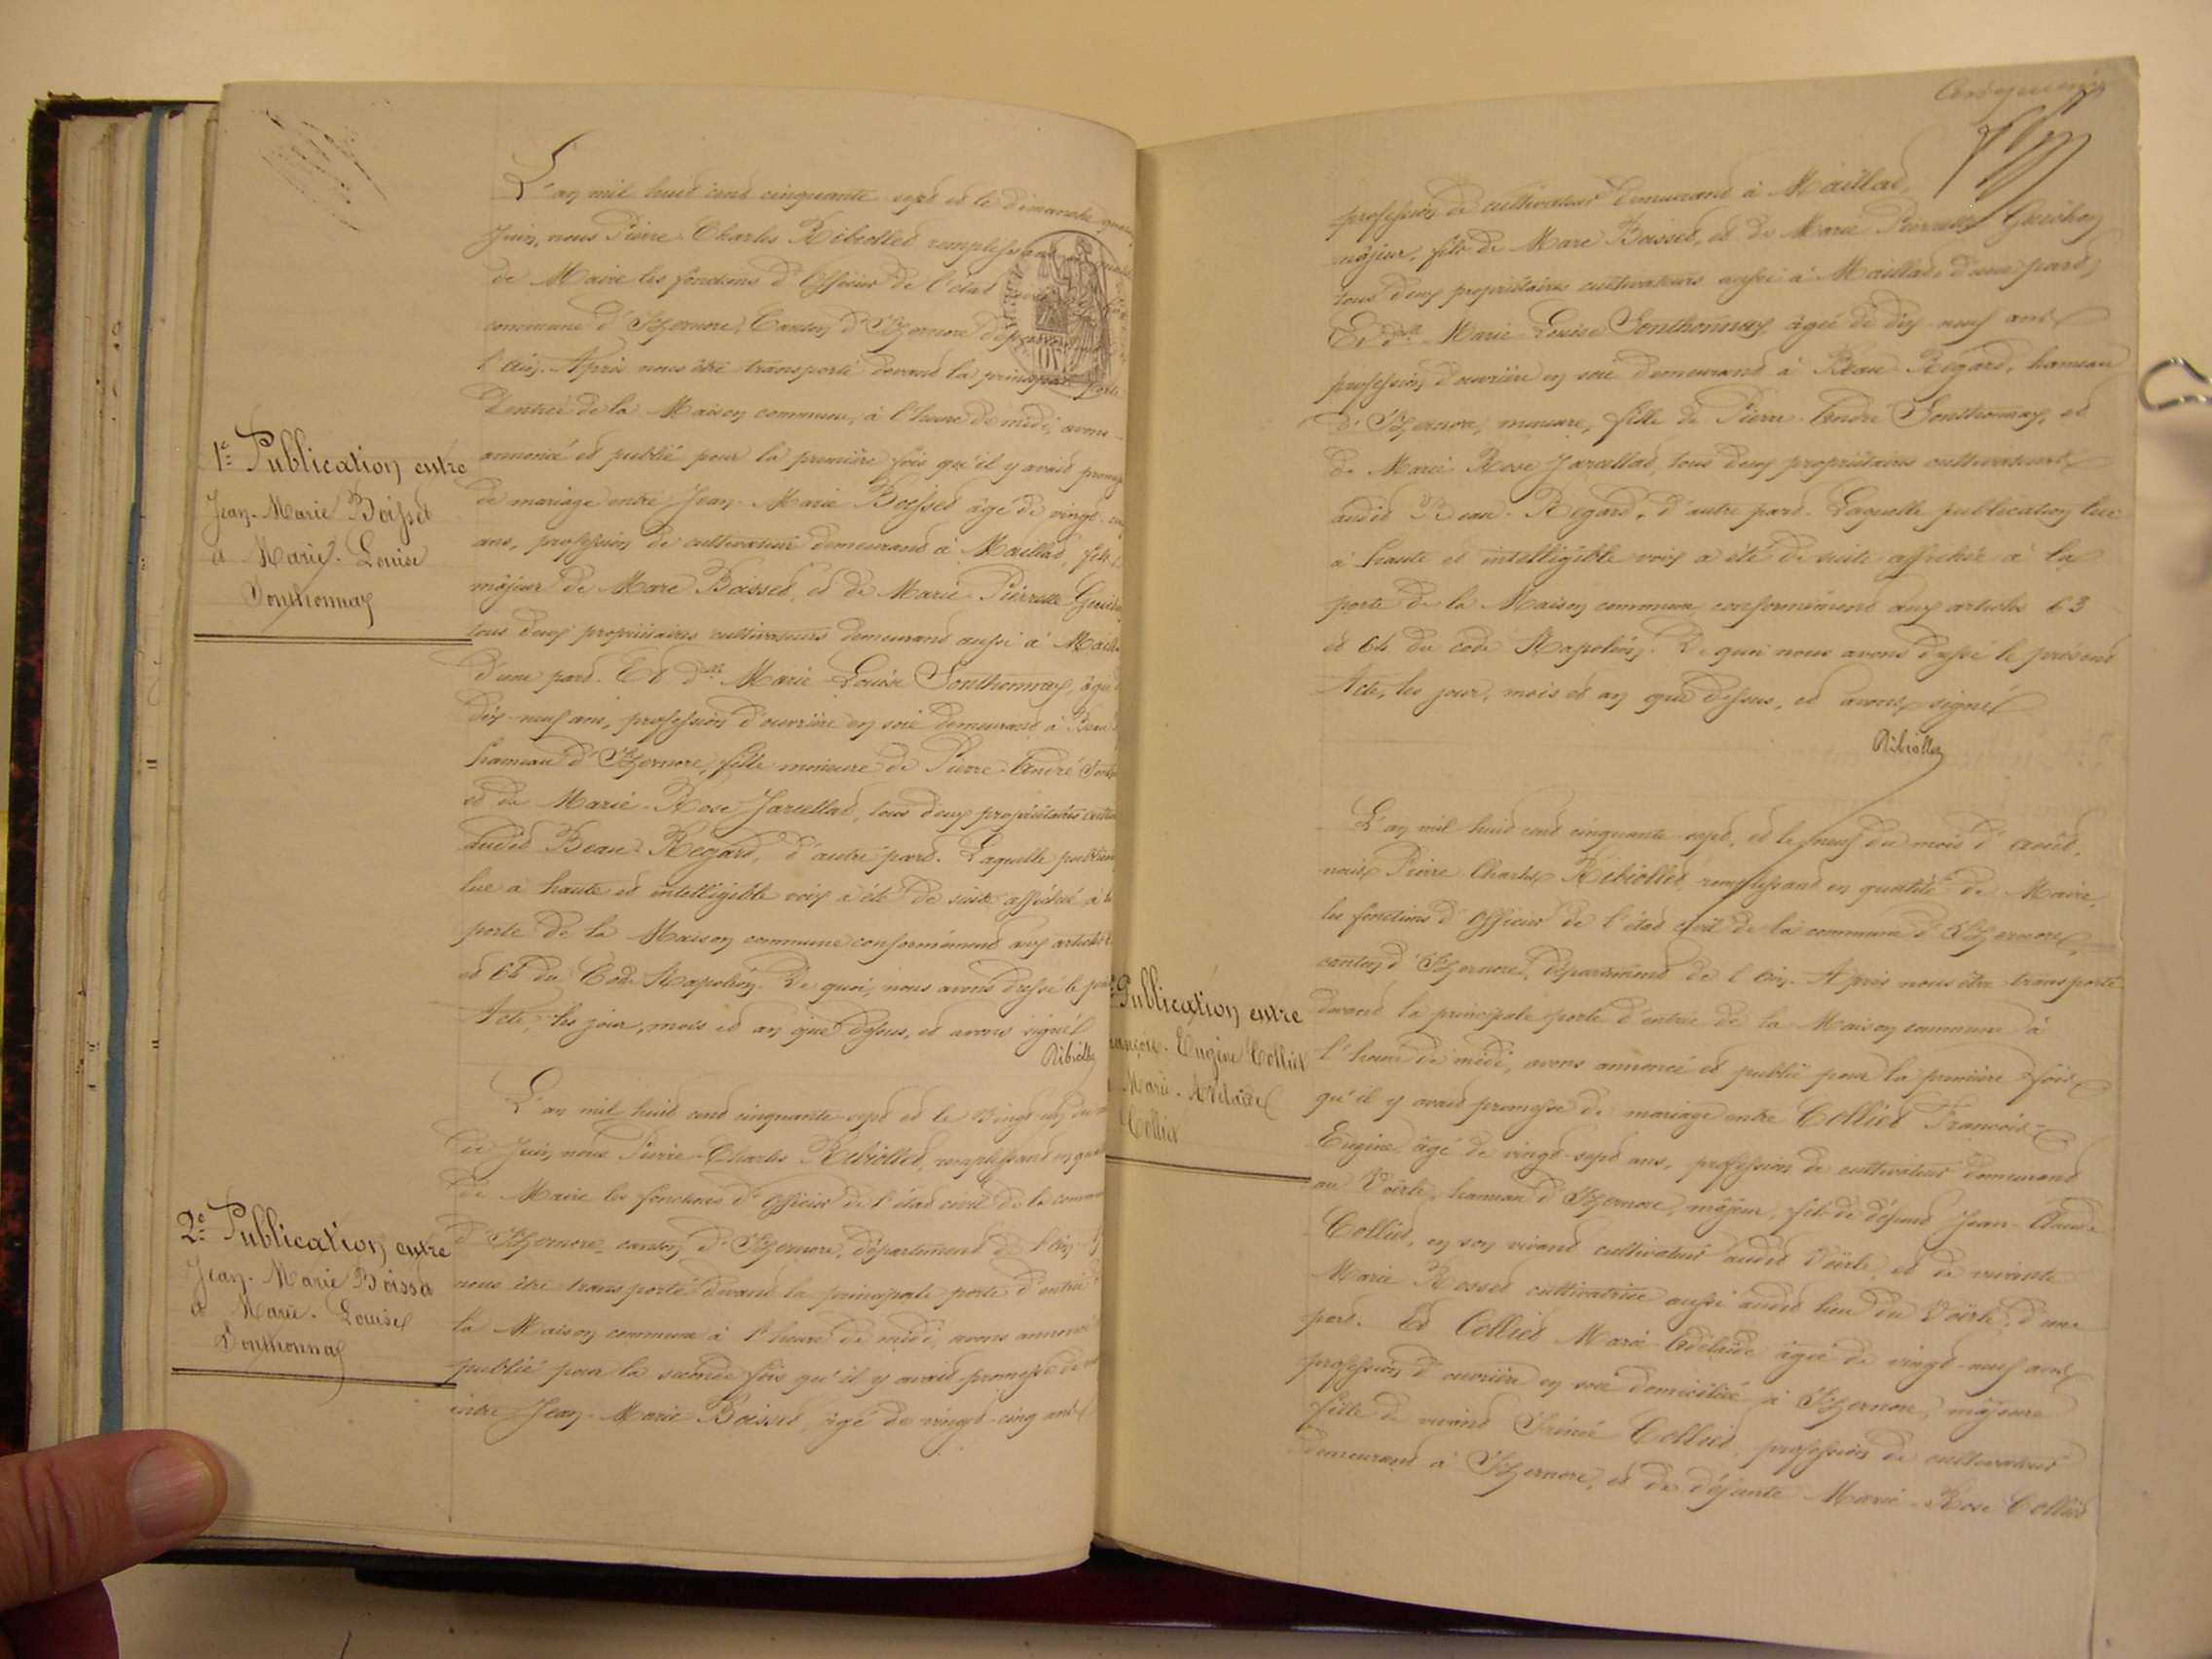 L'an mil huit cent cinquante sept et le dimanche
Juin, nous Pierre Charles Ribiollet remplissant en qualité
de Maire les fonctions d'Officier de l'état
commune d'Izernore, Canton d'Izernore département
l'Ain. Après nous être transporté devant la principale porte
d'entrée de la Maison commune, à l'heure de midi, avons
annoncé et publié pour la première fois qu'il y avait
de mariage entre Jean-Marie Boisset âgé de vingt
ans, profession de cultivateur demeurant à Maillat, fils
majeur de Marc Boisset, et de Marie Pierrette
tous deux propriétaires cultivateurs demeurant aussi à
d'une part. Et dlle Marie-Louise Sonthonnax, âgée
dix-neuf ans, profession d'ouvrière en soie demeurant à Beau
hameau d'Izernore, fille mineure de Pierre-André
et de Marie-Rose Jarcellat, tous deux propriétaires
audit Beau-Regard, d'autre part. Laquelle
lue à haute et intelligible voix a été de suite affichée à la
porte de la Maison commune conformément aux articles
et 64 du Code Napoléon. De quoi, nous avons dressé le
Acte, les jour, mois et an que dessus, et avons signé
Ribiollet
1re Publication entre
Jean-Marie Boisset
a Marie-Louise
Sonthonnax
L'an mil huit cent cinquante-sept et le vingt un du
de Juin, nous Pierre-Charles Ribiollet, remplissant en
de Maire les fonctions d'Officier de l'état civil de la
d'Izernore, canton d'Izernore, département de l'Ain
nous être transporté devant la principale porte d'entrée
la Maison commune à l'heure de midi, avons annoncé
publié pour la seconde fois qu'il y avait promesse de
entre Jean-Marie Boisset, âgé de vingt-cinq ans
2e Publication entre
Jean-Marie Boisset
a Marie-Louise
Sonthonnax
profession de cultivateur demeurant à Maillat,
majeur, fils de Marc Boisset, et de Marie Pierrette
tous deux propriétaires cultivateurs aussi à Maillat d'une part,
Et dlle Marie-Louise Sonthonnax âgée de dix-neuf ans
profession d'ouvrière en soie demeurant à Beau-Regard, hameau
d'Izernore, mineure, fille de Pierre-André Sonthonnax, et
de Marie-Rose Jarcellat, tous deux propriétaires cultivateurs
audit Beau-Regard, d'autre part. Laquelle publication lue
à haute et intelligible voix a été de suite affichée à la
porte de la Maison commune conformément aux articles 63
et 64 du code Napoléon. De quoi nous avons dressé le présent
Acte, les jour, mois et an que dessus, et avons signé
Ribiollet
L'an mil huit cent cinquante-sept, et le neuf du mois d'août,
nous Pierre Charles Ribiollet remplissant en qualité de Maire,
les fonctions d'Officier de l'état civil de la commune d'Izernore,
canton d'Izernore, département de l'Ain. Après nous être transporté
devant la principale porte d'entrée de la Maison commune à
l'heure de midi, avons annoncé et publié pour la première fois
qu'il y avait promesse de mariage entre Colliet François-
Eugène âgé de vingt-sept ans, profession de cultivateur demeurant
au Voërle, hameau d'Izernore, majeur, fils de défunt Jean-Claude
Colliet, en son vivant cultivateur audit Voërle, et de vivante
Marie Rosset cultivatrice aussi audit lieu du Voërle, d'une
part. Et Colliet Marie-Adélaïde âgée de vingt-neuf ans
profession d'ouvrière en soie domiciliée à Izernore, majeure
fille de vivant Colliet, profession de cultivateur
demeurant à Izernore, et de défunte Marie-Rose Colliet
Publication entre
François-Eugène Colliet
Marie-Adélaïde
Colliet